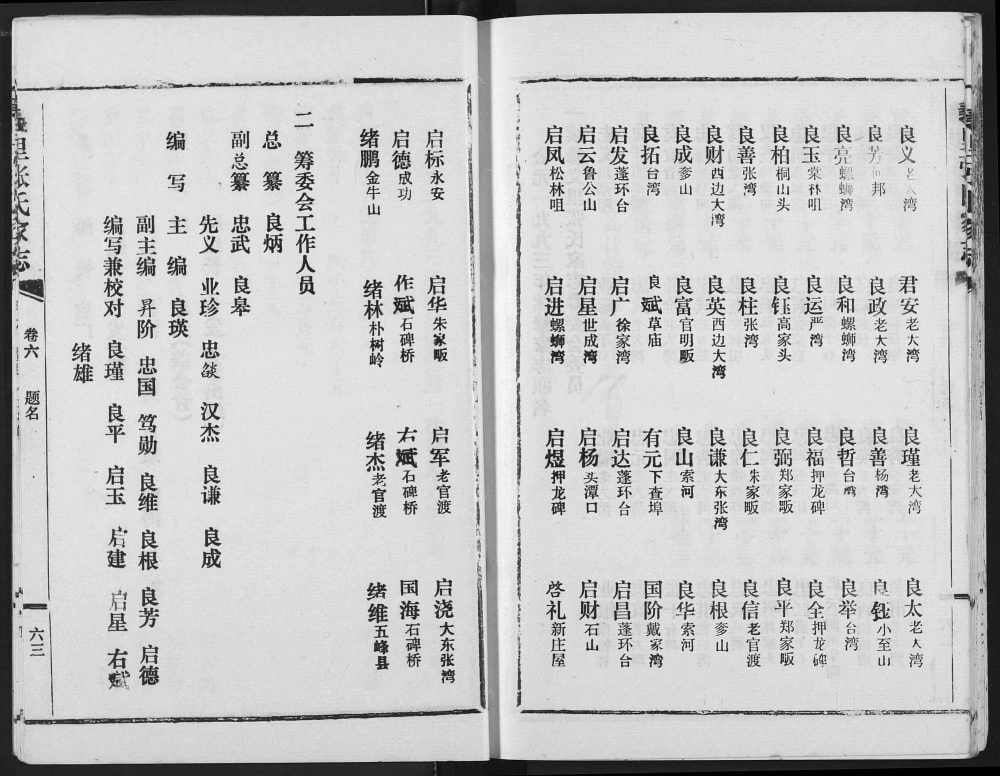 良义老大湾 君安老大湾 良瑾老大湾 良太老大湾
良芳何邦 良政老大湾 良善杨湾 良钰小至山
良亮螺蛳湾 良和螺蛳湾 良哲台湾 良举台湾
良玉棠林咀 良运严湾 良福押龙碑 良全押龙碑
良柏桐山头 良钰高家头 良弼郑家畈 良平郑家畈
良善张湾 良柱张湾 良仁朱家畈 良信老官渡
良财西边大湾 良英西边大湾 良谦大东张湾 良根奓山
良成奓山 良富官明畈 良山索河 良华索河
良拓台湾 良斌草庙 有元下查埠 国阶戴家湾
启发蓬环台 启广徐家湾 启达蓬环台 启昌蓬环台
启云鲁公山 启星世成湾 启杨头潭口 启财石山
启凤松林咀 启进螺蛳湾 启煜押龙碑 啓礼新庄屋
启标永安 启华朱家畈 启军老官渡 启浇大东张湾
启德成功 作斌石碑桥 右斌石碑桥 国海石碑桥
绪鹏金牛山 绪林朴树岭 绪杰老官渡 绪维五峰县
二 筹委会工作人员
总纂 良炳
副总纂 忠武 良皋
先义 业珍 忠燚 汉杰 良谦 良成
编写 主编 良瑛
副主编 昇阶 忠国 笃勋 良维 良根 良芳 启德
编写兼校对 良瑾 良平 启玉 启建 启星 右斌
绪雄
里张氏家志
卷六 题名
六三